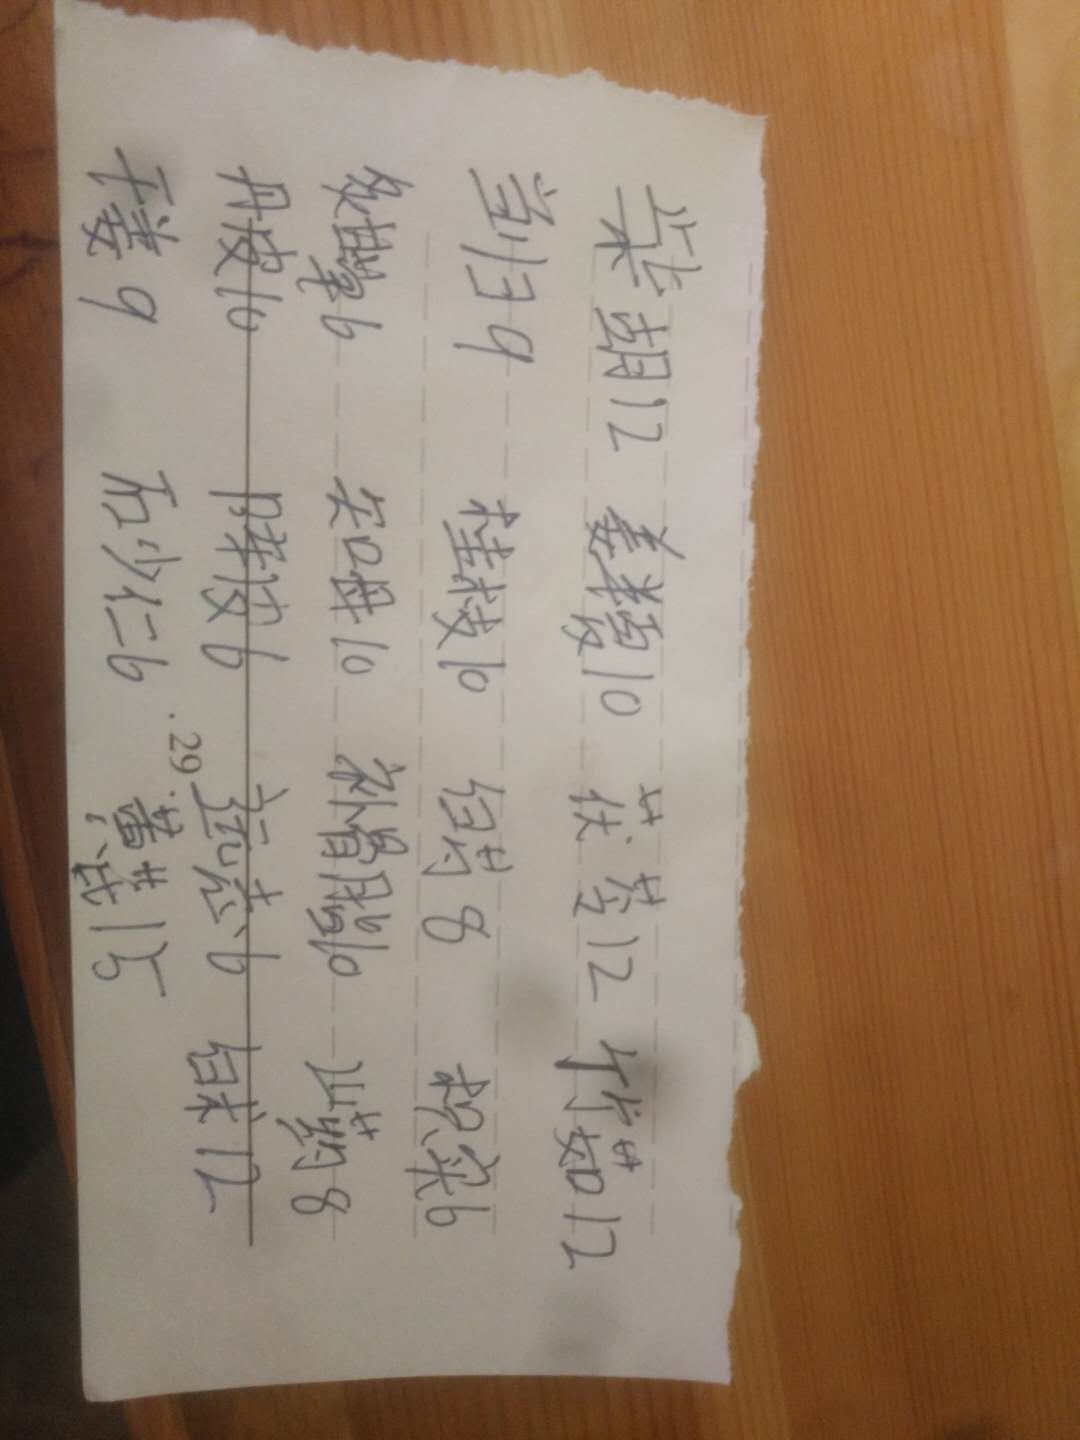 柴胡12 姜半夏10 茯苓12 竹茹12
当归9 桂枝10 白芍8 枳实6
炙甘草6 知母10 补骨脂10 川芎8
丹皮10 陈皮6 远志6 白术12
·29·
干姜9 砂仁6 黄芪15